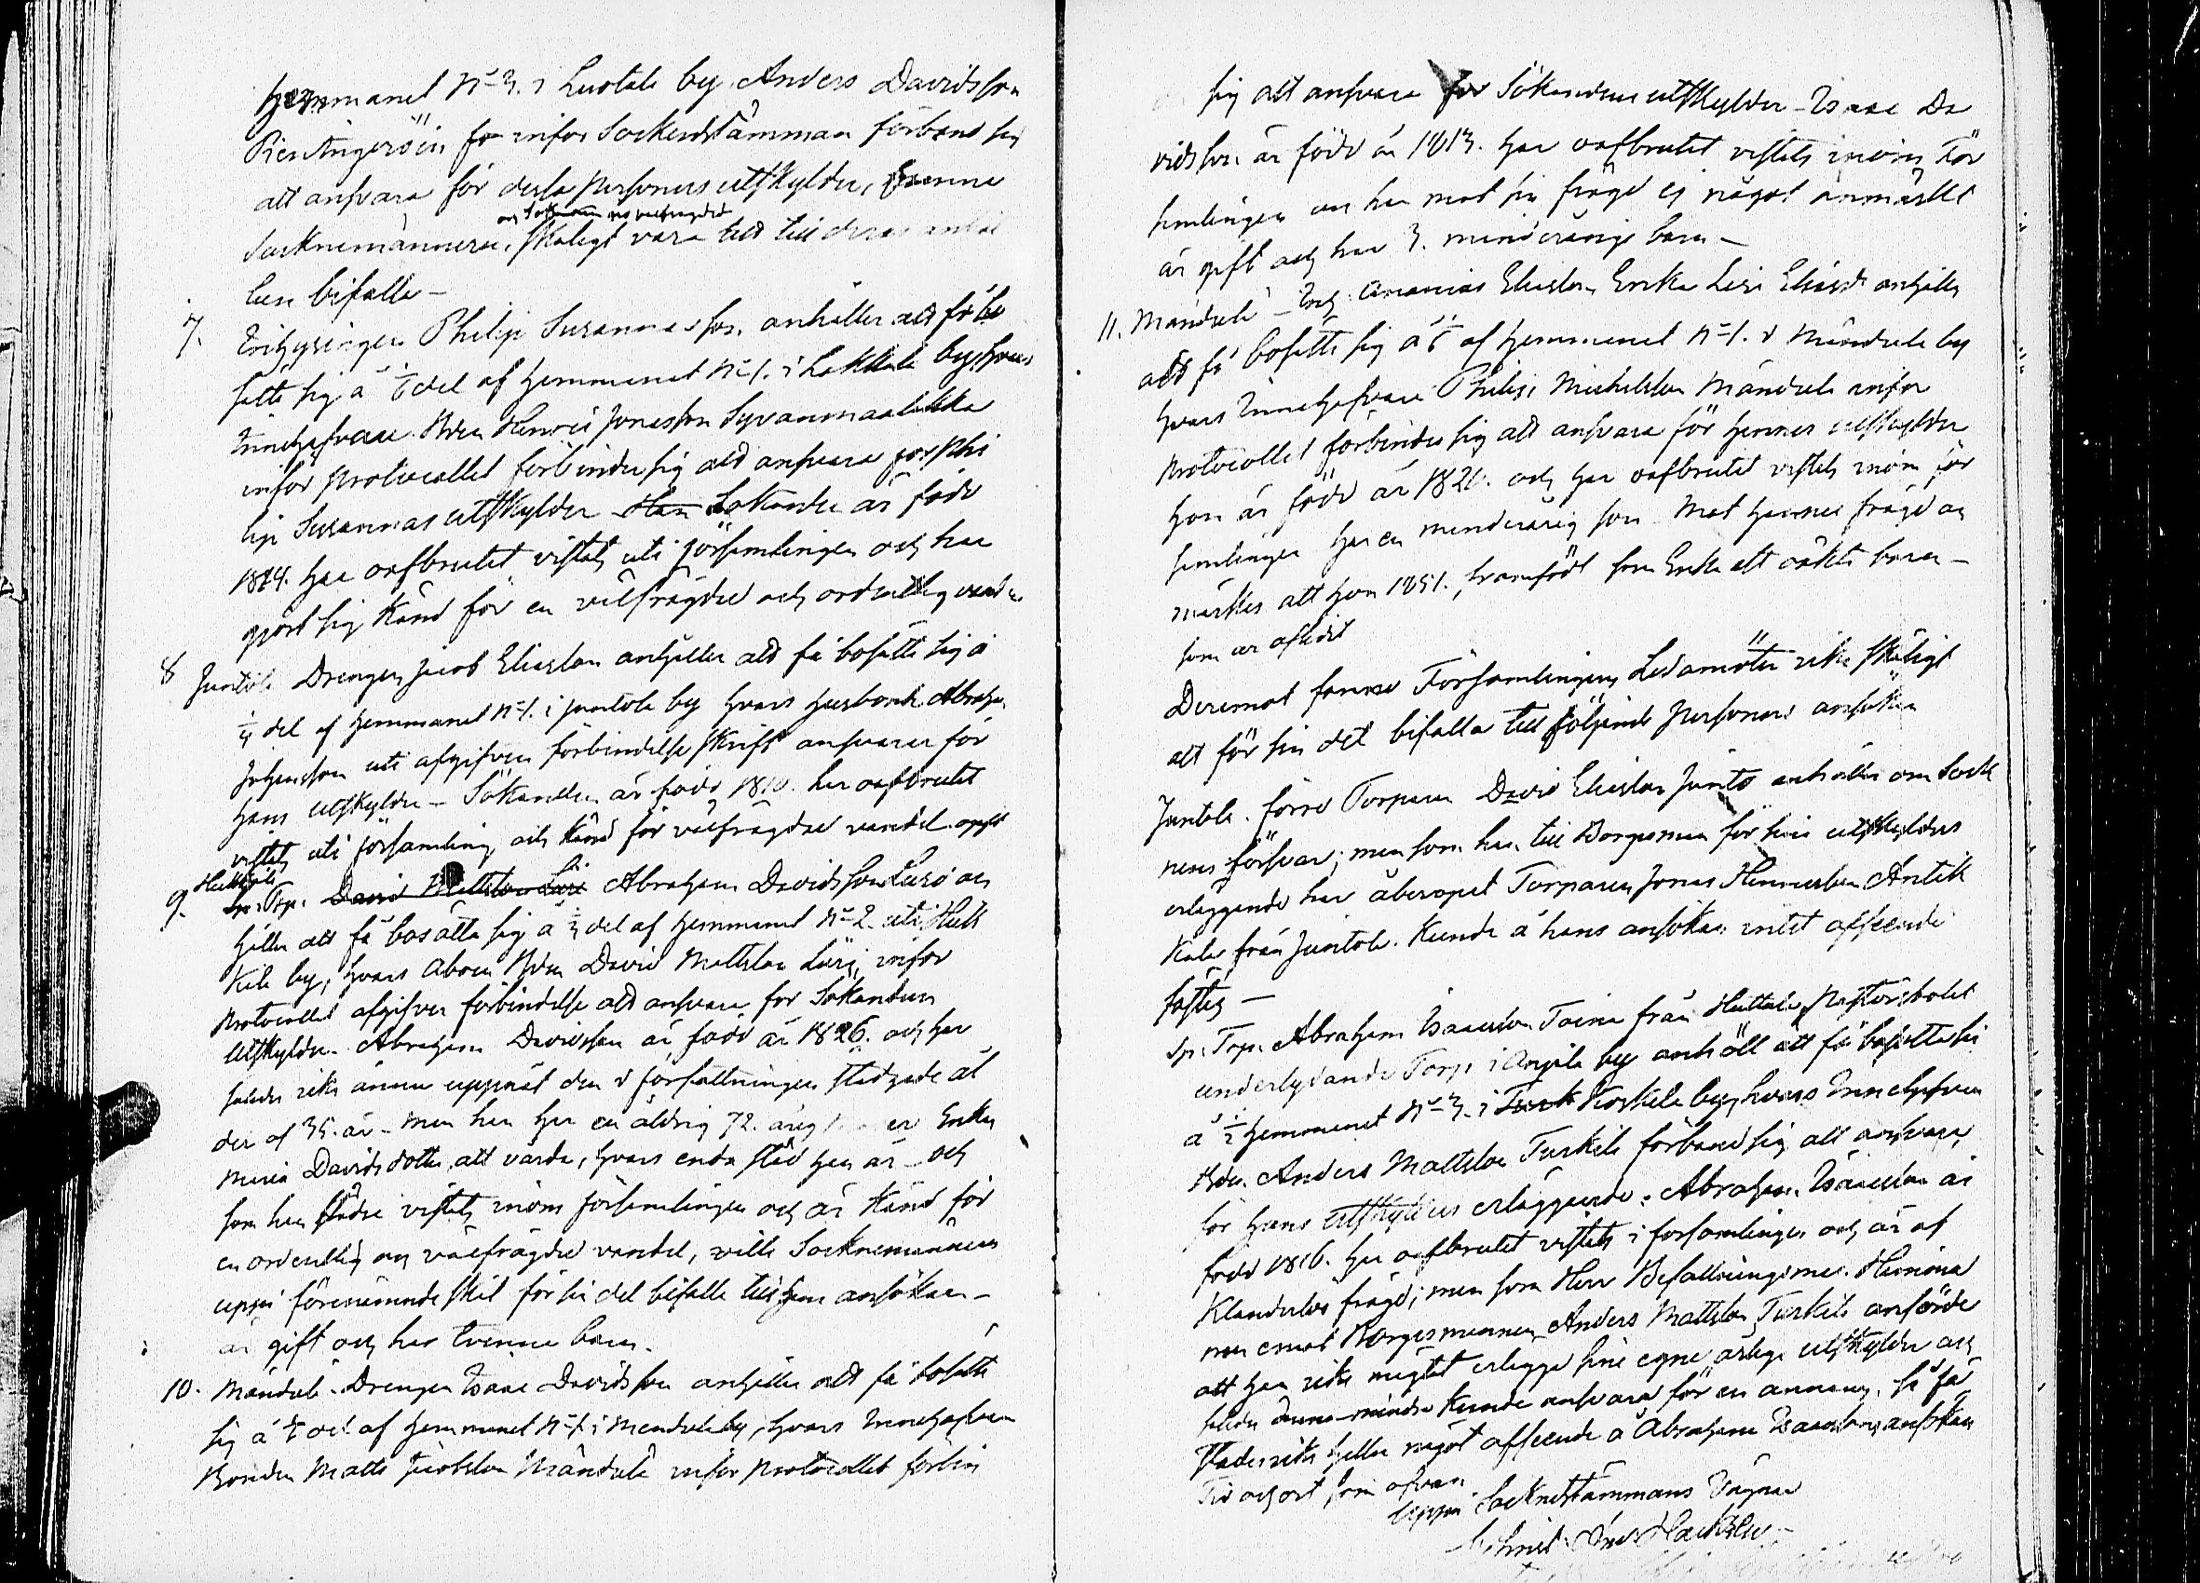 Hemmanet N=3. i Luotola by Anders Davidsson
inför Sockenstämman förband sig
att ansvara för dessa personers utskylder, funno
Socknemännerne skäligt vara att till deras anhål
lan bifalla –
7. Inhysingen Philip Susannasson anhåller att få bo
sätta sig å del af Hemmanet N=1. i by, hvars
Innehafvare Henric Jonasson Syvänmaalakka
inför Protocollet förbinder sig att ansvara för Phi
lip Susannas utskylder – Han Sökanden är född
1824. har oafbrutet vistats uti församlingen och har
gjort sig känd för en välfrägdad och ordentlig vandel
8 Juntola Drengen Jacob Eliasson anhåller att få bosätta sig å
¼ del af Hemmanet N=1. i Juntola by hvars husbonde Abraham
Johansson uti afgifven förbindelse skrift ansvarar för
hans utskylder – Sökanden är född 1810. har oafbrutet
vistats uti församling och känd för välfrägdad vandel. ogift
9. Sp: Torp. David Mattsson Abraham Davidsson an
håller att få bosätta sig å ½ del af Hemmanet N=2. uti Hutt
kila by, hvars Åboen Bden David Mattsson inför
Protocollet afgifver förbindelse att ansvara för Sökandens
Utskylder. Abraham Davidsson är född år 1826. och har
således icke ännu uppnåt den i författningen stadgade ål
der af 35. år – men han har en åldrig 72. årig Enka
Maria Davidsdotter att vårda, hvars enda stöd han är – och
som han städse vistats inom församlingen och är känd för
en ordentlig och välfrägdad vandel, ville Socknemännen
uppå förenämnde skäl för sin del bifalla till hans ansökan –
är gift och har tvenne barn.
10. Mändälä – Drengen Isaac Davidsson anhåller att få bosätta
sig å del af Hemmanet N=1 i Mendälä by, hvars Innehafvare
Bonden Matts Jacobsson Mändälä inför protocollet förbin
sig att ansvara för Sökandens utskylder – Isaac Da
vidsson är född år 1813. har oafbrutet vistats inom För
samlingen och har mot sin frägd ej något anmärkt
är gift och har 3. minderåriga barn –
11. Mändälä – Torp: Ananias Eliasson Enka Lisa Eliasd: anhåller
att få bosätta sig å af Hemmanet N=1. i Mändälä by
hvars Innehafvare Philip Michelsson Mändälä inför
Protocollet förbinder sig att ansvara för hennes utskylder
Hon är född år 1821. och har oafbrutet vistats inom för
samlingen har en minderårig son. Mot hennes frägd an
märkes att hon 1851. framfödt som Enka ett oäkta barn –
som är aflidit
Deremot funno Församlingens Ledamöter icke skäligt
att för sin del bifalla till följande personers ansökan
Juntola. förre Torparen David Eliasson Junto anhåller om Sock
nens försvar; men som han till Borgesman för sina utskylders
erläggande har åberopat Torparen Jonas Hinriksson Antik
kala från Juntola. Kunde å hans ansökan intet afseende
fästes –
Sp: Torp. Abraham Isacsson Toini från Huttula Pastorsbolet
underlydande Torp i Anjala by anhöll att få bosätta sig
å ½ Hemmanet N=3. i Turk Torkila by, hvars Innehafvare
Bden. Anders Mattsson Turkila förband sig att ansvara
för hans utskylders erläggande. Abraham Isacsson är
född 1816. har oafbrutet vistats i församlingen och är af
klanderlös frägd; men som Herr Befallningsman
men emot Borgesmannen Anders Mattsson Turkila anförde
att han icke mägtat erlägga sina egna årliga utskylder och
således ännu mindre kunde ansvara för en annans, så få
stades icke heller något afseende å Abraham Isacssons ansökan
Tid och ort som ofvan
Uppå Socknestämmans Vägnar